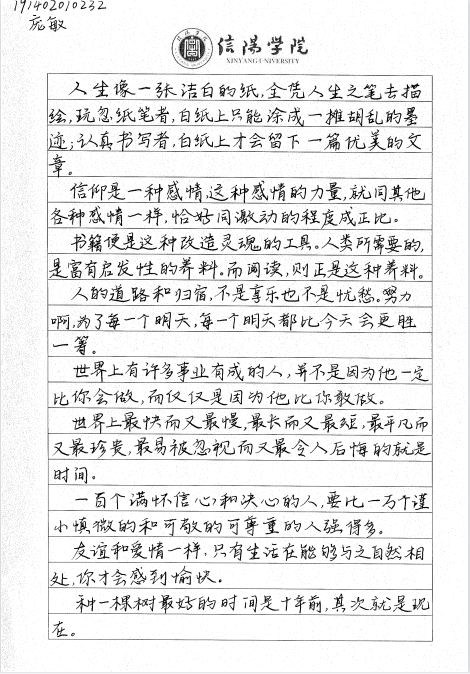 191402010232
庞敏
信陽学院
XINYANG UNIVERSITY
人生像一张洁白的纸,全凭人生之笔去描
绘,玩忽纸笔者,白纸上只能涂成一摊胡乱的墨
迹;认真书写者,白纸上才会留下一篇优美的文
章。
信仰是一种感情,这种感情的力量,就同其他
各种感情一样,恰好同激动的程度成正比。
书籍便是这种改造灵魂的工具。人类所需要的,
是富有启发性的养料。而阅读,则正是这种养料。
人的道路和归宿,不是享乐也不是忧愁。努力
啊,为了每一个明天,每一个明天都比今天会更胜
一等。
世界上有许多事业有成的人,并不是因为他一定
比你会做,而仅仅是因为他比你敢做。
世界上最快而又最慢,最长而又最短,最平凡而
又最珍贵,最易被忽视而又最令人后悔的就是
时间。
一百个满怀信心和决心的人,要比一万个谨
小慎微的和可敬的可尊重的人强得多。
友谊和爱情一样,只有生活在能够与之自然相
处,你才会感到愉快。
种一棵树最好的时间是十年前,其次就是现
在。